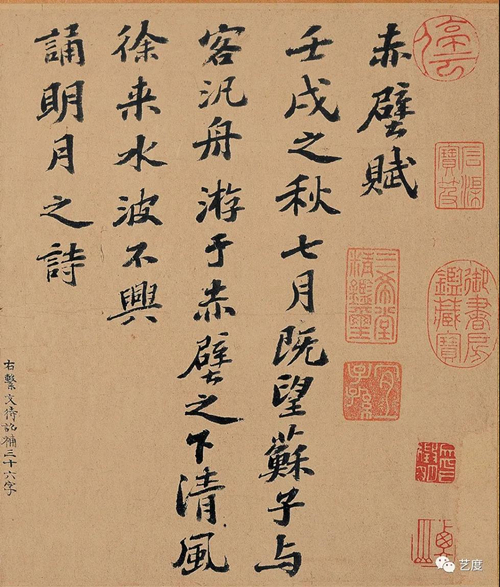 停云
石渠寶笈
御書房鑑藏寶
赤壁賦
三希堂精鑑璽
宜子孫
壬戌之秋七月既望蘇子与
客汎舟游于赤壁之下清風
徐来水波不興
誦明月之詩
右繫文待詔補三十六字
艺度